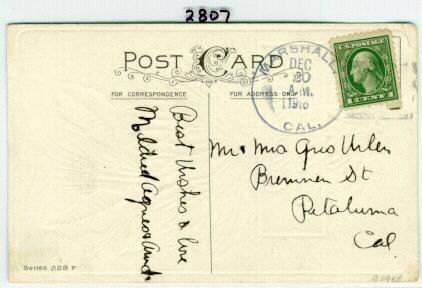 2807
POST CARD
FOR CORRESPONDENCE
FOR ADDRESS ONLY
MARSHALL
DEC
20
A.M.
CAL.
U.S. POSTAGE
1 CENT 1
Best Wishes & love
Mildred Agnes &
Mr & Mrs Gus
St
Petaluma
Cal.
Series 228 F